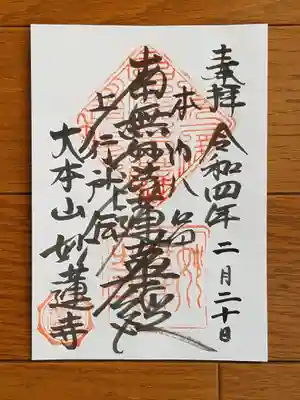 奉拝
令和四年二月二十日
本門八品
南無妙法蓮華経
上行所伝
大本山妙蓮寺